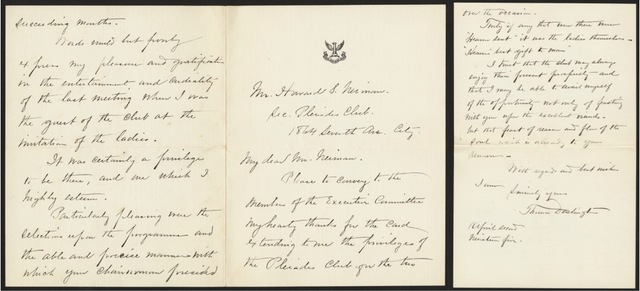 Mr. Howard S. Neiman.
Sec. Pleiades Club.
1864 Seventh Ave. City
My dear Mr. Neiman.
Please to convey to the
Members of the Executive Committee
my hearty thanks for the Card
extending to me the privileges of
the Pleiades Club for the two
succeeding months.
Words could but poorly
express my pleasure and gratification
in the entertainment and cordiality
of the last meeting when I was
the guest of the club at the
invitation of the ladies.
It was certainly a privilege
to be there, and one which I
highly esteem.
Particularly pleasing were the
selections upon the programme and
the able and precise manner with
which your Chairwoman presided
over the occasion.
Truly if any that were there were
"Heaven sent" it was the ladies themselves—
"Heaven's best gift to man"
I trust that the club may always
enjoy their present prosperity and
that I may be able to avail myself
of the opportunity not only of
with you upon the excellent
but that feast of reason and flow of the
soul to your
With regards and best wishes
I am
Sincerely yours
April
Nineteen five.